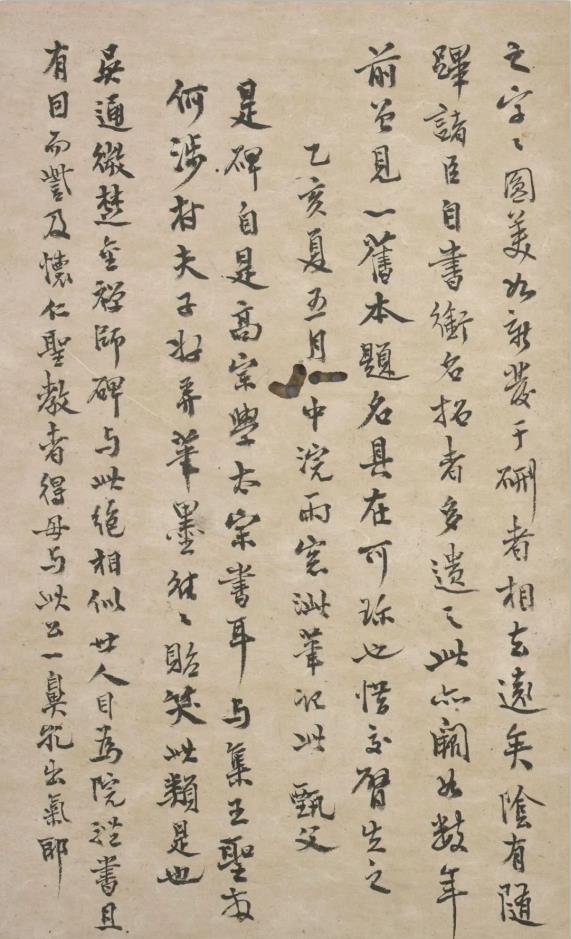 之字〻圓美如新發于硎者相去遠矣陰有隨
蹕諸臣自書銜名拓者多遺之此亦闕如數年
前曾見一舊本題名具在可珎也惜交臂失之
乙亥夏五月中浣雨窓泚筆記此 甄父
是碑自是高宗學太宗書耳与集王聖教
何涉村夫子好弄筆墨往〻貽笑此類是也
吳通微楚金禪師碑与此絶相似世人目為院體書且
有因而訾及懷仁聖教者得毋与此公一鼻孔出氣耶